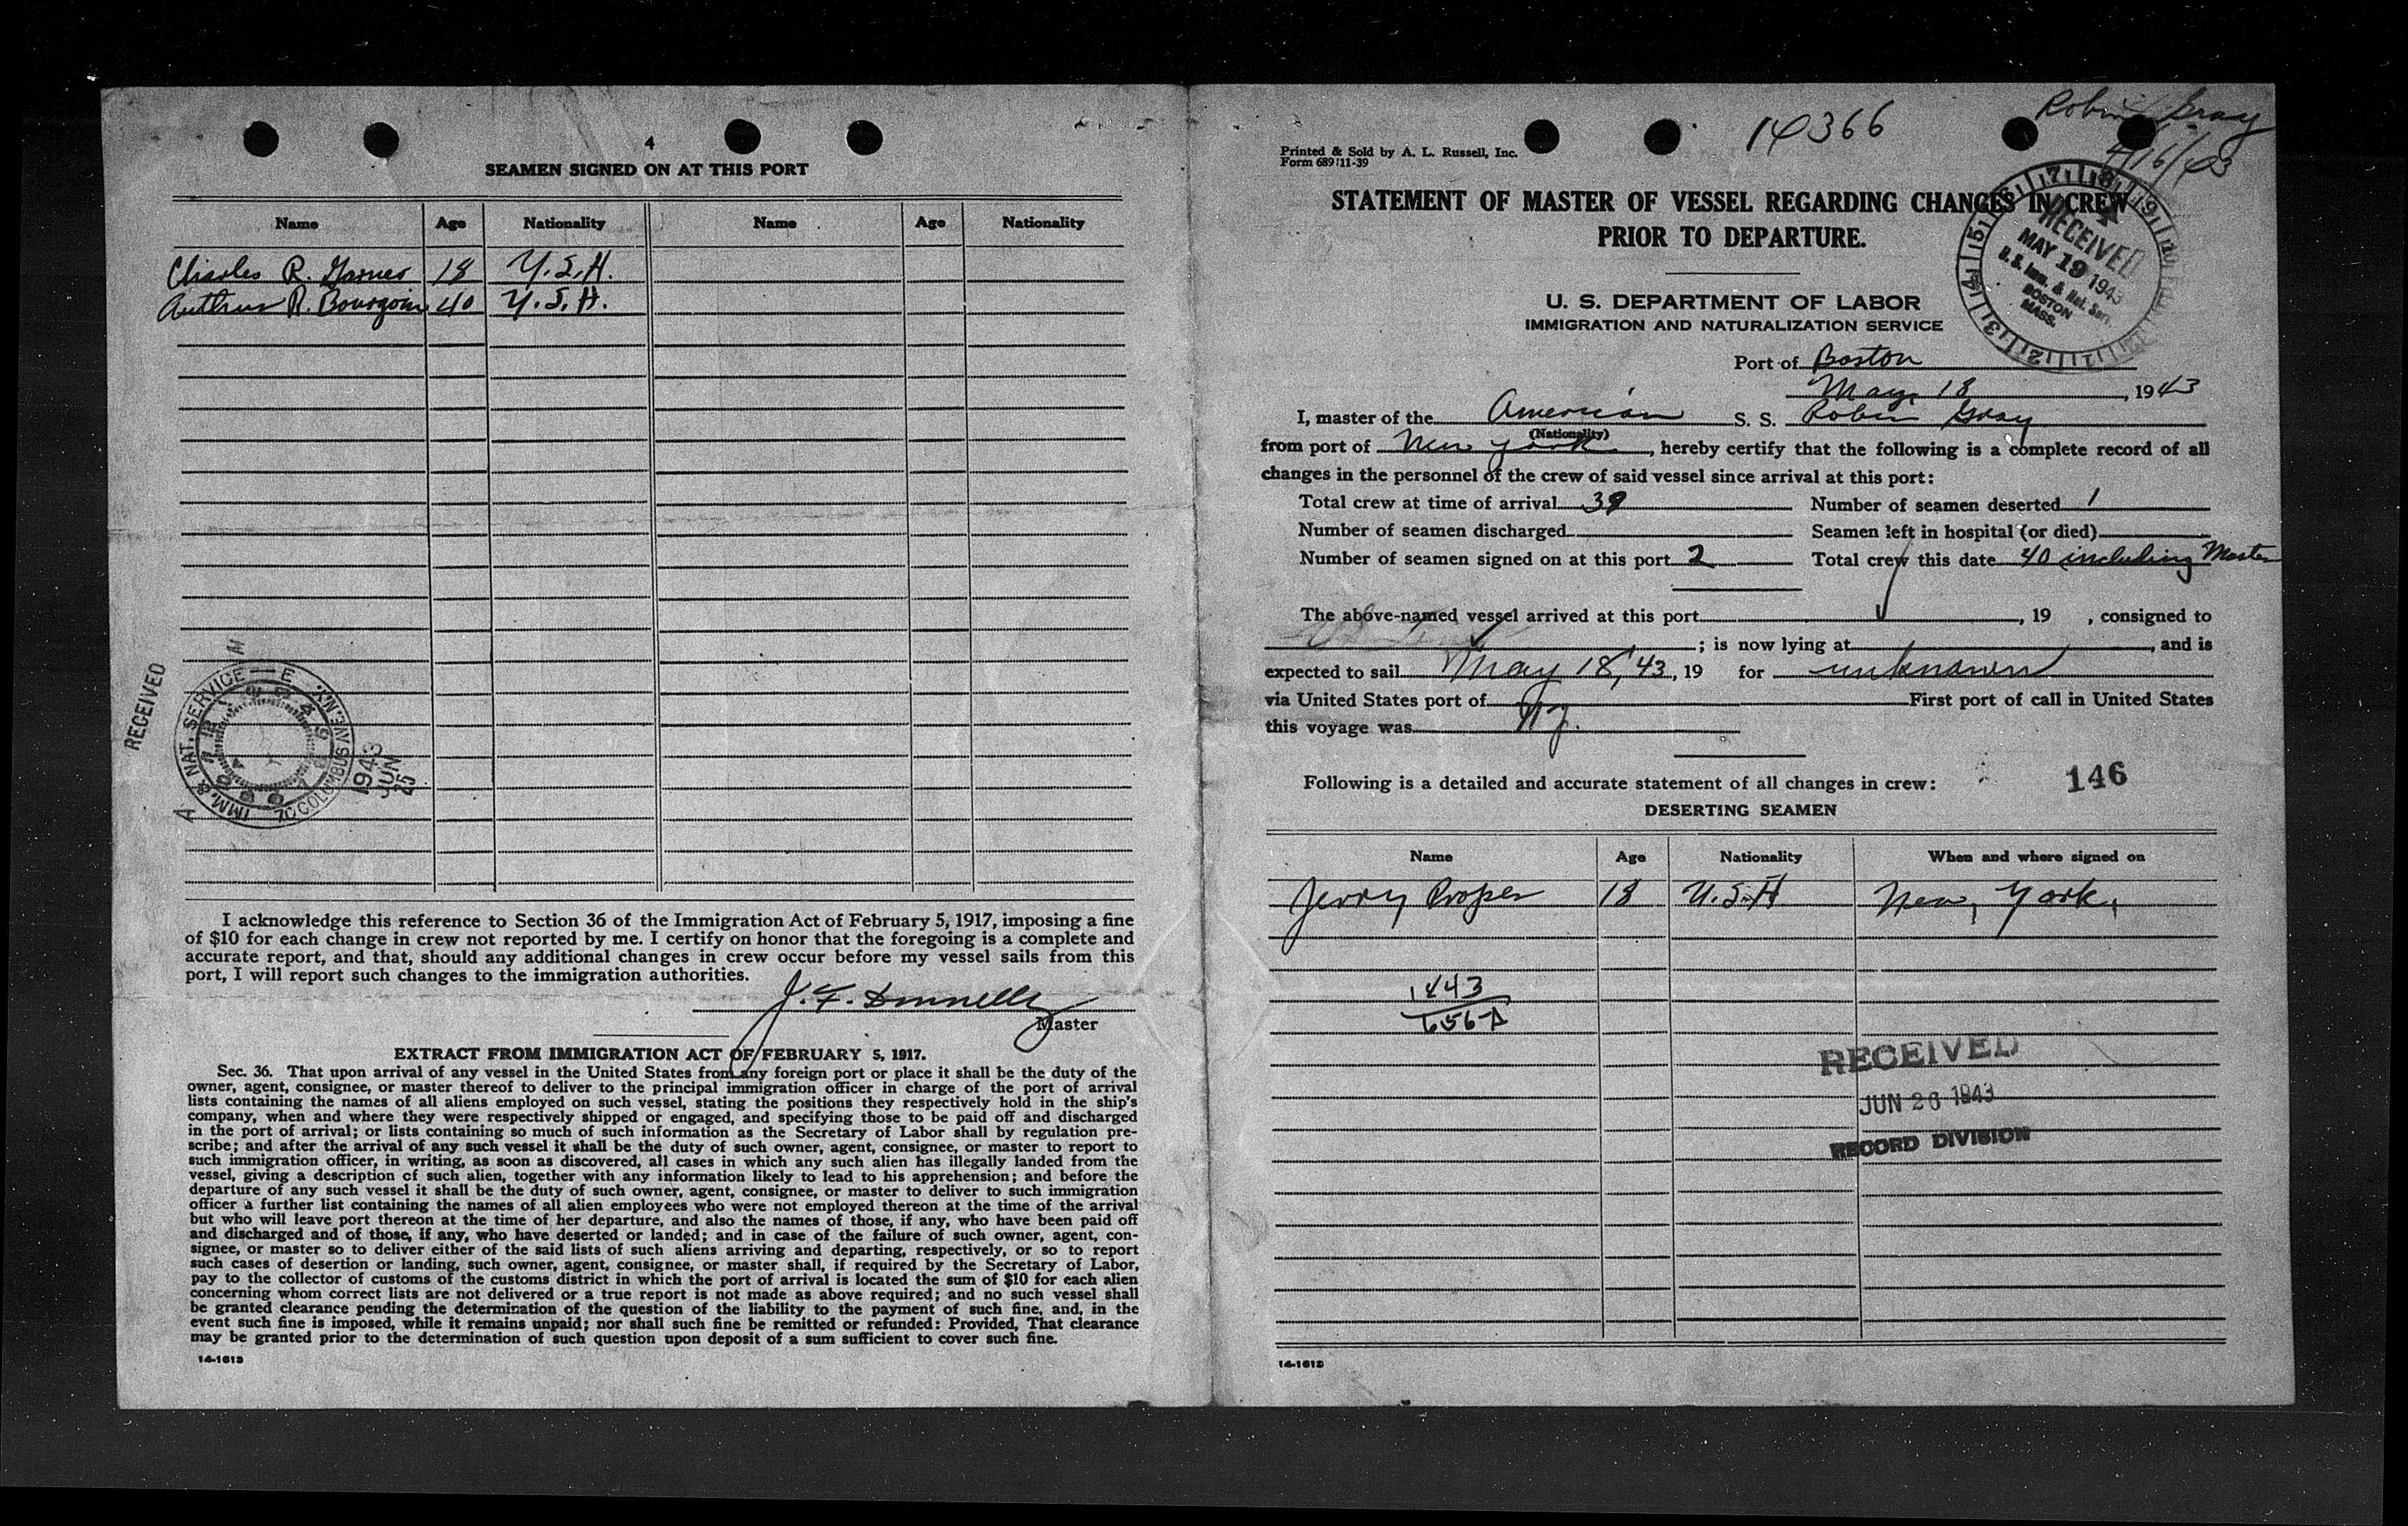 4
SEAMEN SIGNED ON AT THIS PORT
Name Age Nationality Name Age Nationality
Charles R. 18 U.S.A.
Arthur R. Bourgoin 40 U.S.A.
RECEIVED
IMM. & NAT. SERVICE
70 COLUMBUS AVE. N.Y.
1943
JUN
25
I acknowledge this reference to Section 36 of the Immigration Act of February 5, 1917, imposing a fine
of $10 for each change in crew not reported by me. I certify on honor that the foregoing is a complete and
accurate report, and that, should any additional changes in crew occur before my vessel sails from this
port, I will report such changes to the immigration authorities.
J. F. Donnelly
Master
EXTRACT FROM IMMIGRATION ACT OF FEBRUARY 5, 1917.
Sec. 36. That upon arrival of any vessel in the United States from any foreign port or place it shall be the duty of the
owner, agent, consignee, or master thereof to deliver to the principal immigration officer in charge of the port of arrival
lists containing the names of all aliens employed on such vessel, stating the positions they respectively hold in the ship's
company, when and where they were respectively shipped or engaged, and specifying those to be paid off and discharged
in the port of arrival; or lists containing so much of such information as the Secretary of Labor shall by regulation pre-
scribe; and after the arrival of any such vessel it shall be the duty of such owner, agent, consignee, or master to report to
such immigration officer, in writing, as soon as discovered, all cases in which any such alien has illegally landed from the
vessel, giving a description of such alien, together with any information likely to lead to his apprehension; and before the
departure of any such vessel it shall be the duty of such owner, agent, consignee, or master to deliver to such immigration
officer a further list containing the names of all alien employees who were not employed thereon at the time of the arrival
but who will leave port thereon at the time of her departure, and also the names of those, if any, who have been paid off
and discharged and of those, if any, who have deserted or landed; and in case of the failure of such owner, agent, con-
signee, or master so to deliver either of the said lists of such aliens arriving and departing, respectively, or so to report
such cases of desertion or landing, such owner, agent, consignee, or master shall, if required by the Secretary of Labor,
pay to the collector of customs of the customs district in which the port of arrival is located the sum of $10 for each alien
concerning whom correct lists are not delivered or a true report is not made as above required; and no such vessel shall
be granted clearance pending the determination of the question of the liability to the payment of such fine, and, in the
event such fine is imposed, while it remains unpaid; nor shall such fine be remitted or refunded: Provided, That clearance
may be granted prior to the determination of such question upon deposit of a sum sufficient to cover such fine.
14-1613
Robin Gray
14366
4/16/43
Printed & Sold by A. L. Russell, Inc.
Form 689:11-39
STATEMENT OF MASTER OF VESSEL REGARDING CHANGES IN CREW
PRIOR TO DEPARTURE.
RECEIVED
MAY 19 1943
U. S. Imm. & Nat. Serv.
BOSTON
MASS.
U. S. DEPARTMENT OF LABOR
IMMIGRATION AND NATURALIZATION SERVICE
Port of Boston
May 18, 1943
I, master of the American S. S. Robin Gray
(Nationality)
from port of New York, hereby certify that the following is a complete record of all
changes in the personnel of the crew of said vessel since arrival at this port:
Total crew at time of arrival 39 Number of seamen deserted 1
Number of seamen discharged Seamen left in hospital (or died)
Number of seamen signed on at this port 2 Total crew this date 40 including Master
The above-named vessel arrived at this port , 19 , consigned to
; is now lying at , and is
expected to sail May 18, '43, 19 for unknown
via United States port of First port of call in United States
this voyage was NY.
Following is a detailed and accurate statement of all changes in crew:
146
DESERTING SEAMEN
Name Age Nationality When and where signed on
Jerry 18 U.S.A New York
1443
656-A
RECEIVED
JUN 26 1943
RECORD DIVISION
14-1613